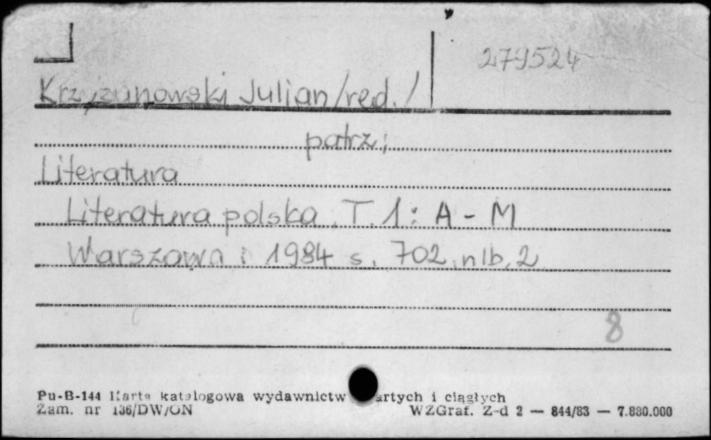 279524
Krzyżanowski Julian /red./
patrz:
Literatura
Literatura polska. T. 1: A - M
Warszawa : 1984 s. 702, nlb. 2
8
Pu-B-144 Karta katalogowa wydawnictw artych i ciągłych
Zam. nr 136/DW/ON WZGraf. Z-d 2 — 844/83 — 7.880.000